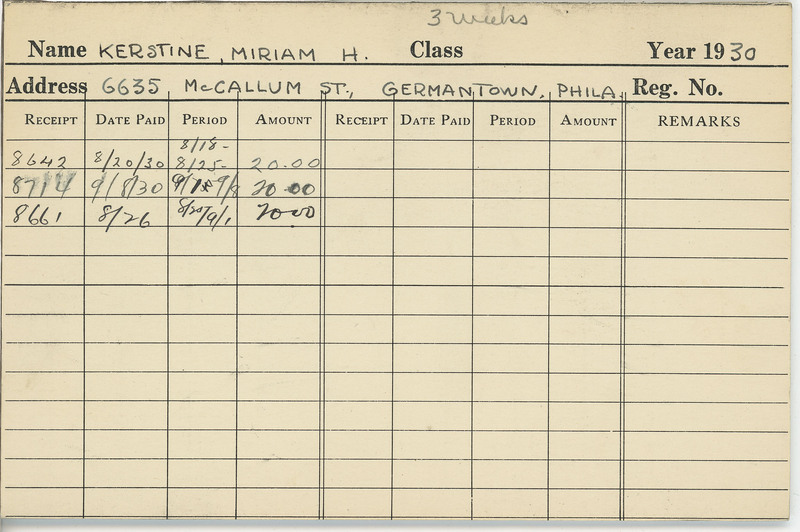 3 weeks
Name KERSTINE, MIRIAM H. Class Year 1930
Address 6635 McCALLUM ST., GERMANTOWN, PHILA. Reg. No.
RECEIPT DATE PAID PERIOD AMOUNT RECEIPT DATE PAID PERIOD AMOUNT REMARKS
8/18-
8642 8/20/30 8/25- 20.00
8714 9/8/30 9/1 9/8 20.00
8661 8/26 8/25/9/1 20.00